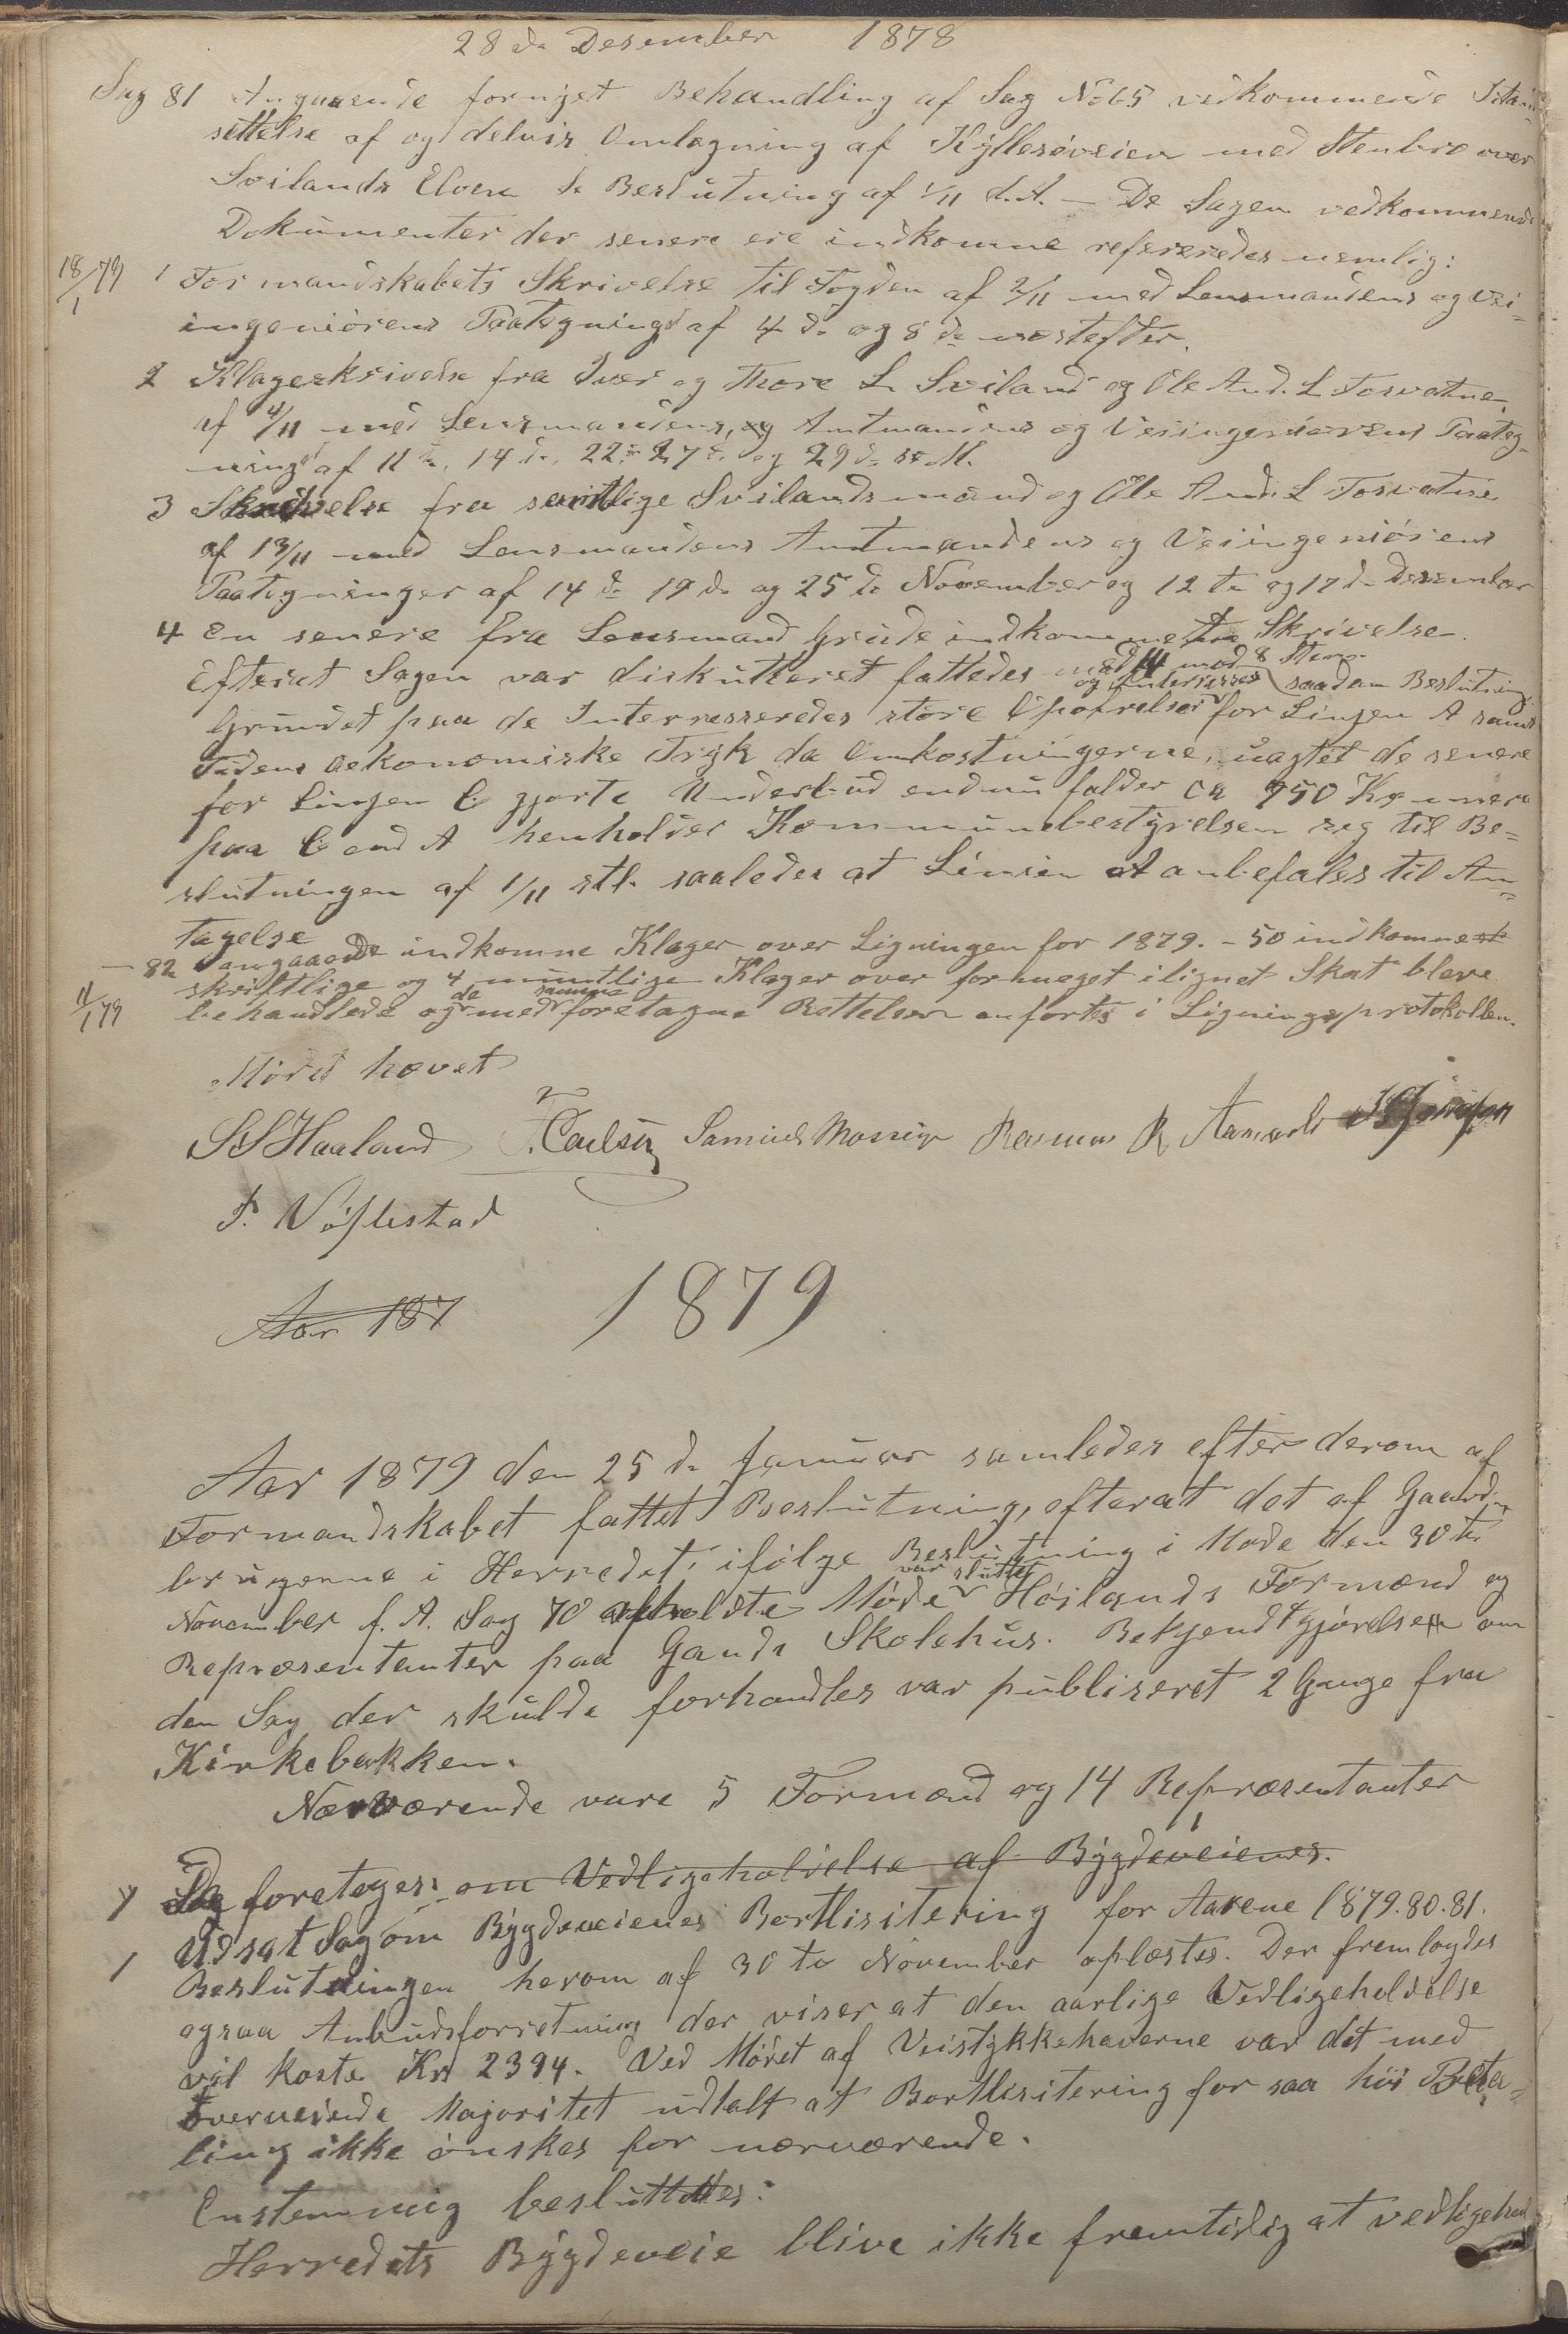 28de Desember 1878
Sag 81 Angaaende fornyet Behandling af Sag No 65 vedkommende Istand-
sættelse af og delvis Omlægning af Kyllesøveien med Stenbro over
Svilands Elven se Beslutning af 1/11 d.A. — De Sagen vedkommende
Dokumenter der senere ere indkomne refereredes nemlig:
18/1 79 1 Formandskabets Skrivelse til Fogden af 2/11 med Lensmandens og Vei-
ingeniørens Paategning af 4de og 8de næstefter.
2 Klageskrivelse fra Iver og Thore L. Sviland og Ole And. L. Fosvatne
af 4/11 med Lensmandens, Amtmandens og Veiingeniørens Paateg-
ning af 11te, 14de, 22de 27de og 29de s.M.
3 Skrivelse fra samtlige Svilandsmænd og Ole And. L Fosvatne
af 13/11 med Lensmandens Amtmandens og Veiingeniørens
Paategninger af 14de 19de og 25de November og 12te og 17de Desember
4 En senere fra Lensmand Grude indkommet Skrivelse.
Efterat Sagen var diskutteret fattedes med 14 mod 8 Stem. saadan Beslutning
Grundet paa de Interresseredes store Opofrelser og Interresser for Linjen A samt
Tidens økonomiske Tryk da Omkostningerne, uagtet de senere
for Linjen C gjorte Underbud endnu falder ca 750 Kr mere
paa C end A henholder Kommunebestyrelsen sig til Be-
slutningen af 1/11 stl. saaledes at Linien A anbefales til An-
tagelse
— 82 angaaende indkomne Klager over Ligningen for 1879. - 50 indkomne
11/1 79 skriftlige og 4 mundtlige Klager over formeget ilignet Skat bleve
behandlede og de med samme foretagne Rettelser anførtes i Ligningsprotokollen.
Mødet hævet
S S Haaland T. Carlsen Samuel Rasmus R Aamodt
T. Vølstad
Aar 187 1879
Aar 1879 den 25de Januar samledes efter derom af
Formandskabet fattet Beslutning, efterat det af Gaard-
brugerne i Herredet ifølge Beslutning i Møde den 30te
November f. A. Sag 70 afholdte Møde var sluttet Høilands Formænd og
Repræsentanter paa Gands Skolehus. Bekjendtgjørelse om
den Sag der skulde forhandles var publiseret 2 Gange fra
Kirkebakken.
Nærværende vare 5 Formænd og 14 Repræsentanter
Da foretoges: om Vedligeholdelse af Bygdeveienes.
1 Udsat Sag om Bygdeveienes Bortlisitering for Aarene 1879.80.81.
Beslutningen herom af 30te November oplæstes. Der fremlagdes
ogsaa Anbudsforretning der viser at den aarlige Vedligeholdelse
vil koste Kr 2394. Ved Mødet af Veistykkehaverne var det med
overveiende Majoritet udtalt at Bortlisitering for saa høi Beta-
ling ikke ønskes for nærværende.
Enstemmig besluttedes:
Herredets Bygdeveie blive ikke fremtidig at vedligehol